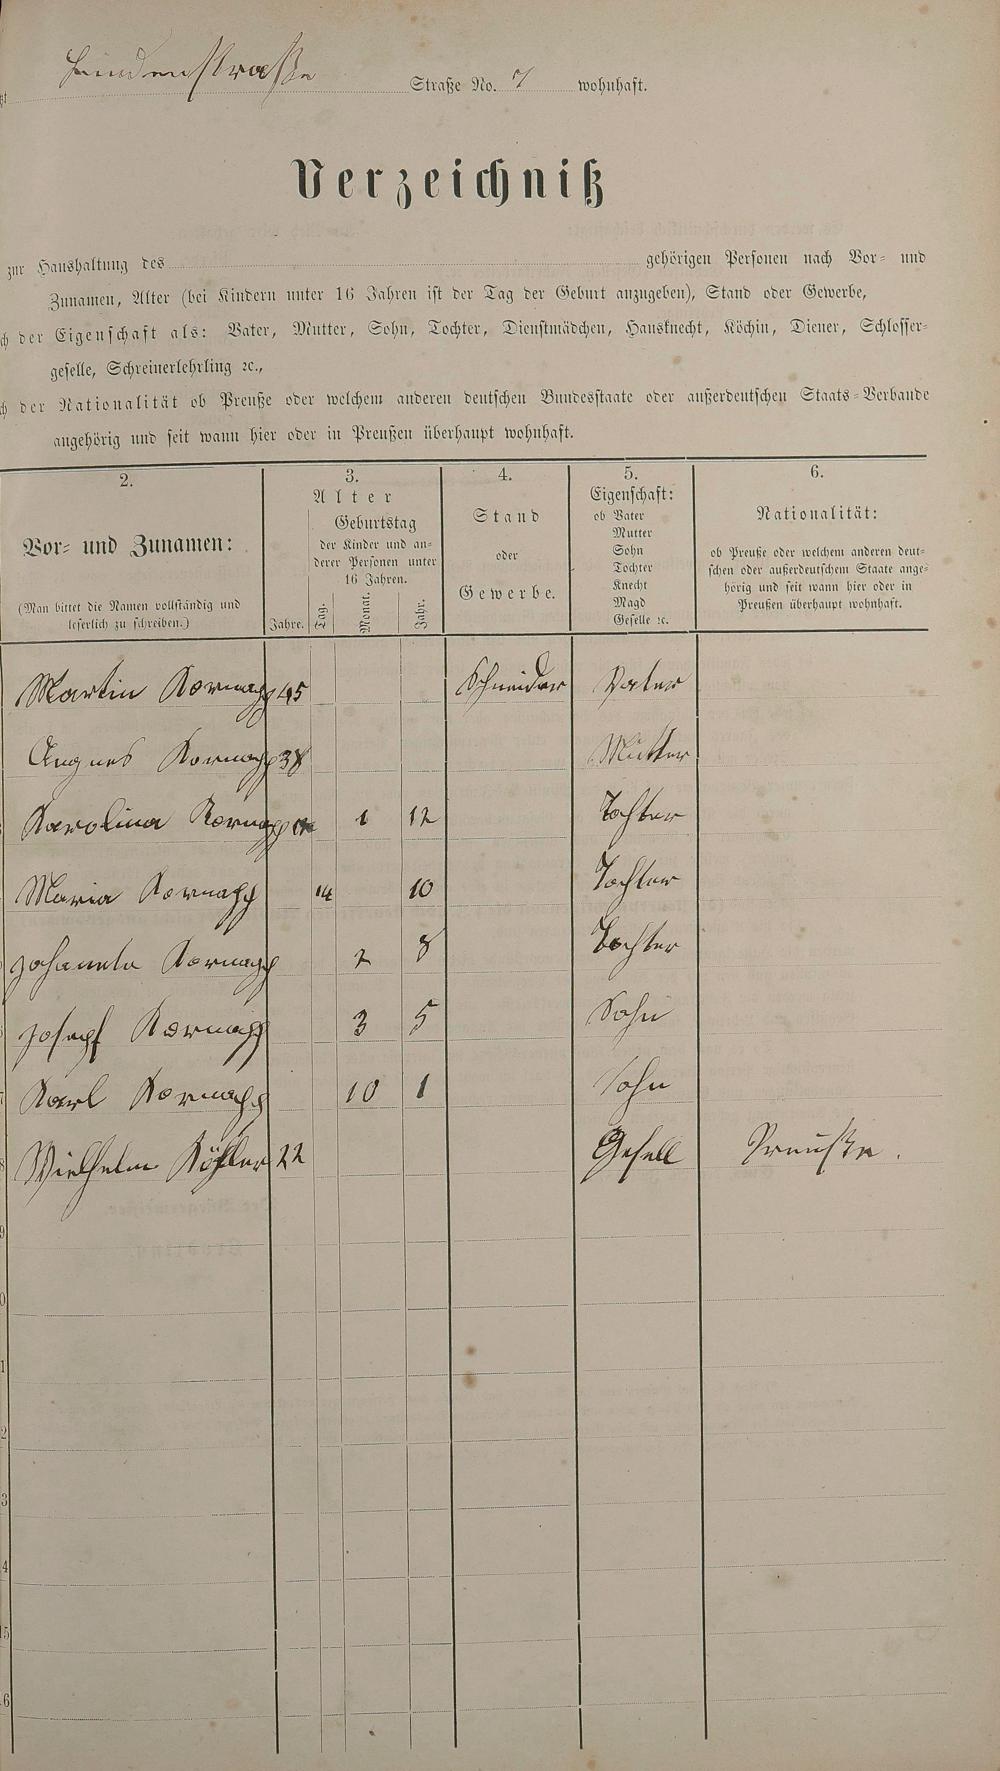 Lindenstraße Straße No. 7 wohnhaft.
Verzeichniß
zur Haushaltung des gehörigen Personen nach Vor- und
Zunamen, Alter (bei Kindern unter 16 Jahren ist der Tag der Geburt anzugeben), Stand oder Gewerbe,
der Eigenschaft als: Vater, Mutter, Sohn, Tochter, Dienstmädchen, Hausknecht, Köchin, Diener, Schlosser-
geselle, Schreinerlehrling ꝛc.,
der Nationalität ob Preuße oder welchem anderen deutschen Bundesstaate oder außerdeutschen Staats-Verbande
angehörig und seit wann hier oder in Preußen überhaupt wohnhaft.
2. 3. 4. 5. 6.
Vor- und Zunamen:
(Man bittet die Namen vollständig und
leserlich zu schreiben.)
Alter
Geburtstag
der Kinder und an-
derer Personen unter
16 Jahren.
Jahre. Tag. Monat. Jahr.
Stand
oder
Gewerbe.
Eigenschaft:
ob Vater
Mutter
Sohn
Tochter
Knecht
Magd
Geselle ꝛc.
Nationalität:
ob Preuße oder welchem anderen deut-
schen oder außerdeutschem Staate ange-
hörig und seit wann hier oder in
Preußen überhaupt wohnhaft.
Martin Kornapp 45 Schneider Vater
Angnes Kornapp 38 Mutter
Karolina Kornapp 1 12 Tochter
Maria Kornapp 14 10 Tochter
Johaneta Kornapp 2 8 Tochter
Josepf Kornapp 3 5 Sohn
Karl Kornapp 10 1 Sohn
Wielhelm Köhler 22 Gesell Preuße.